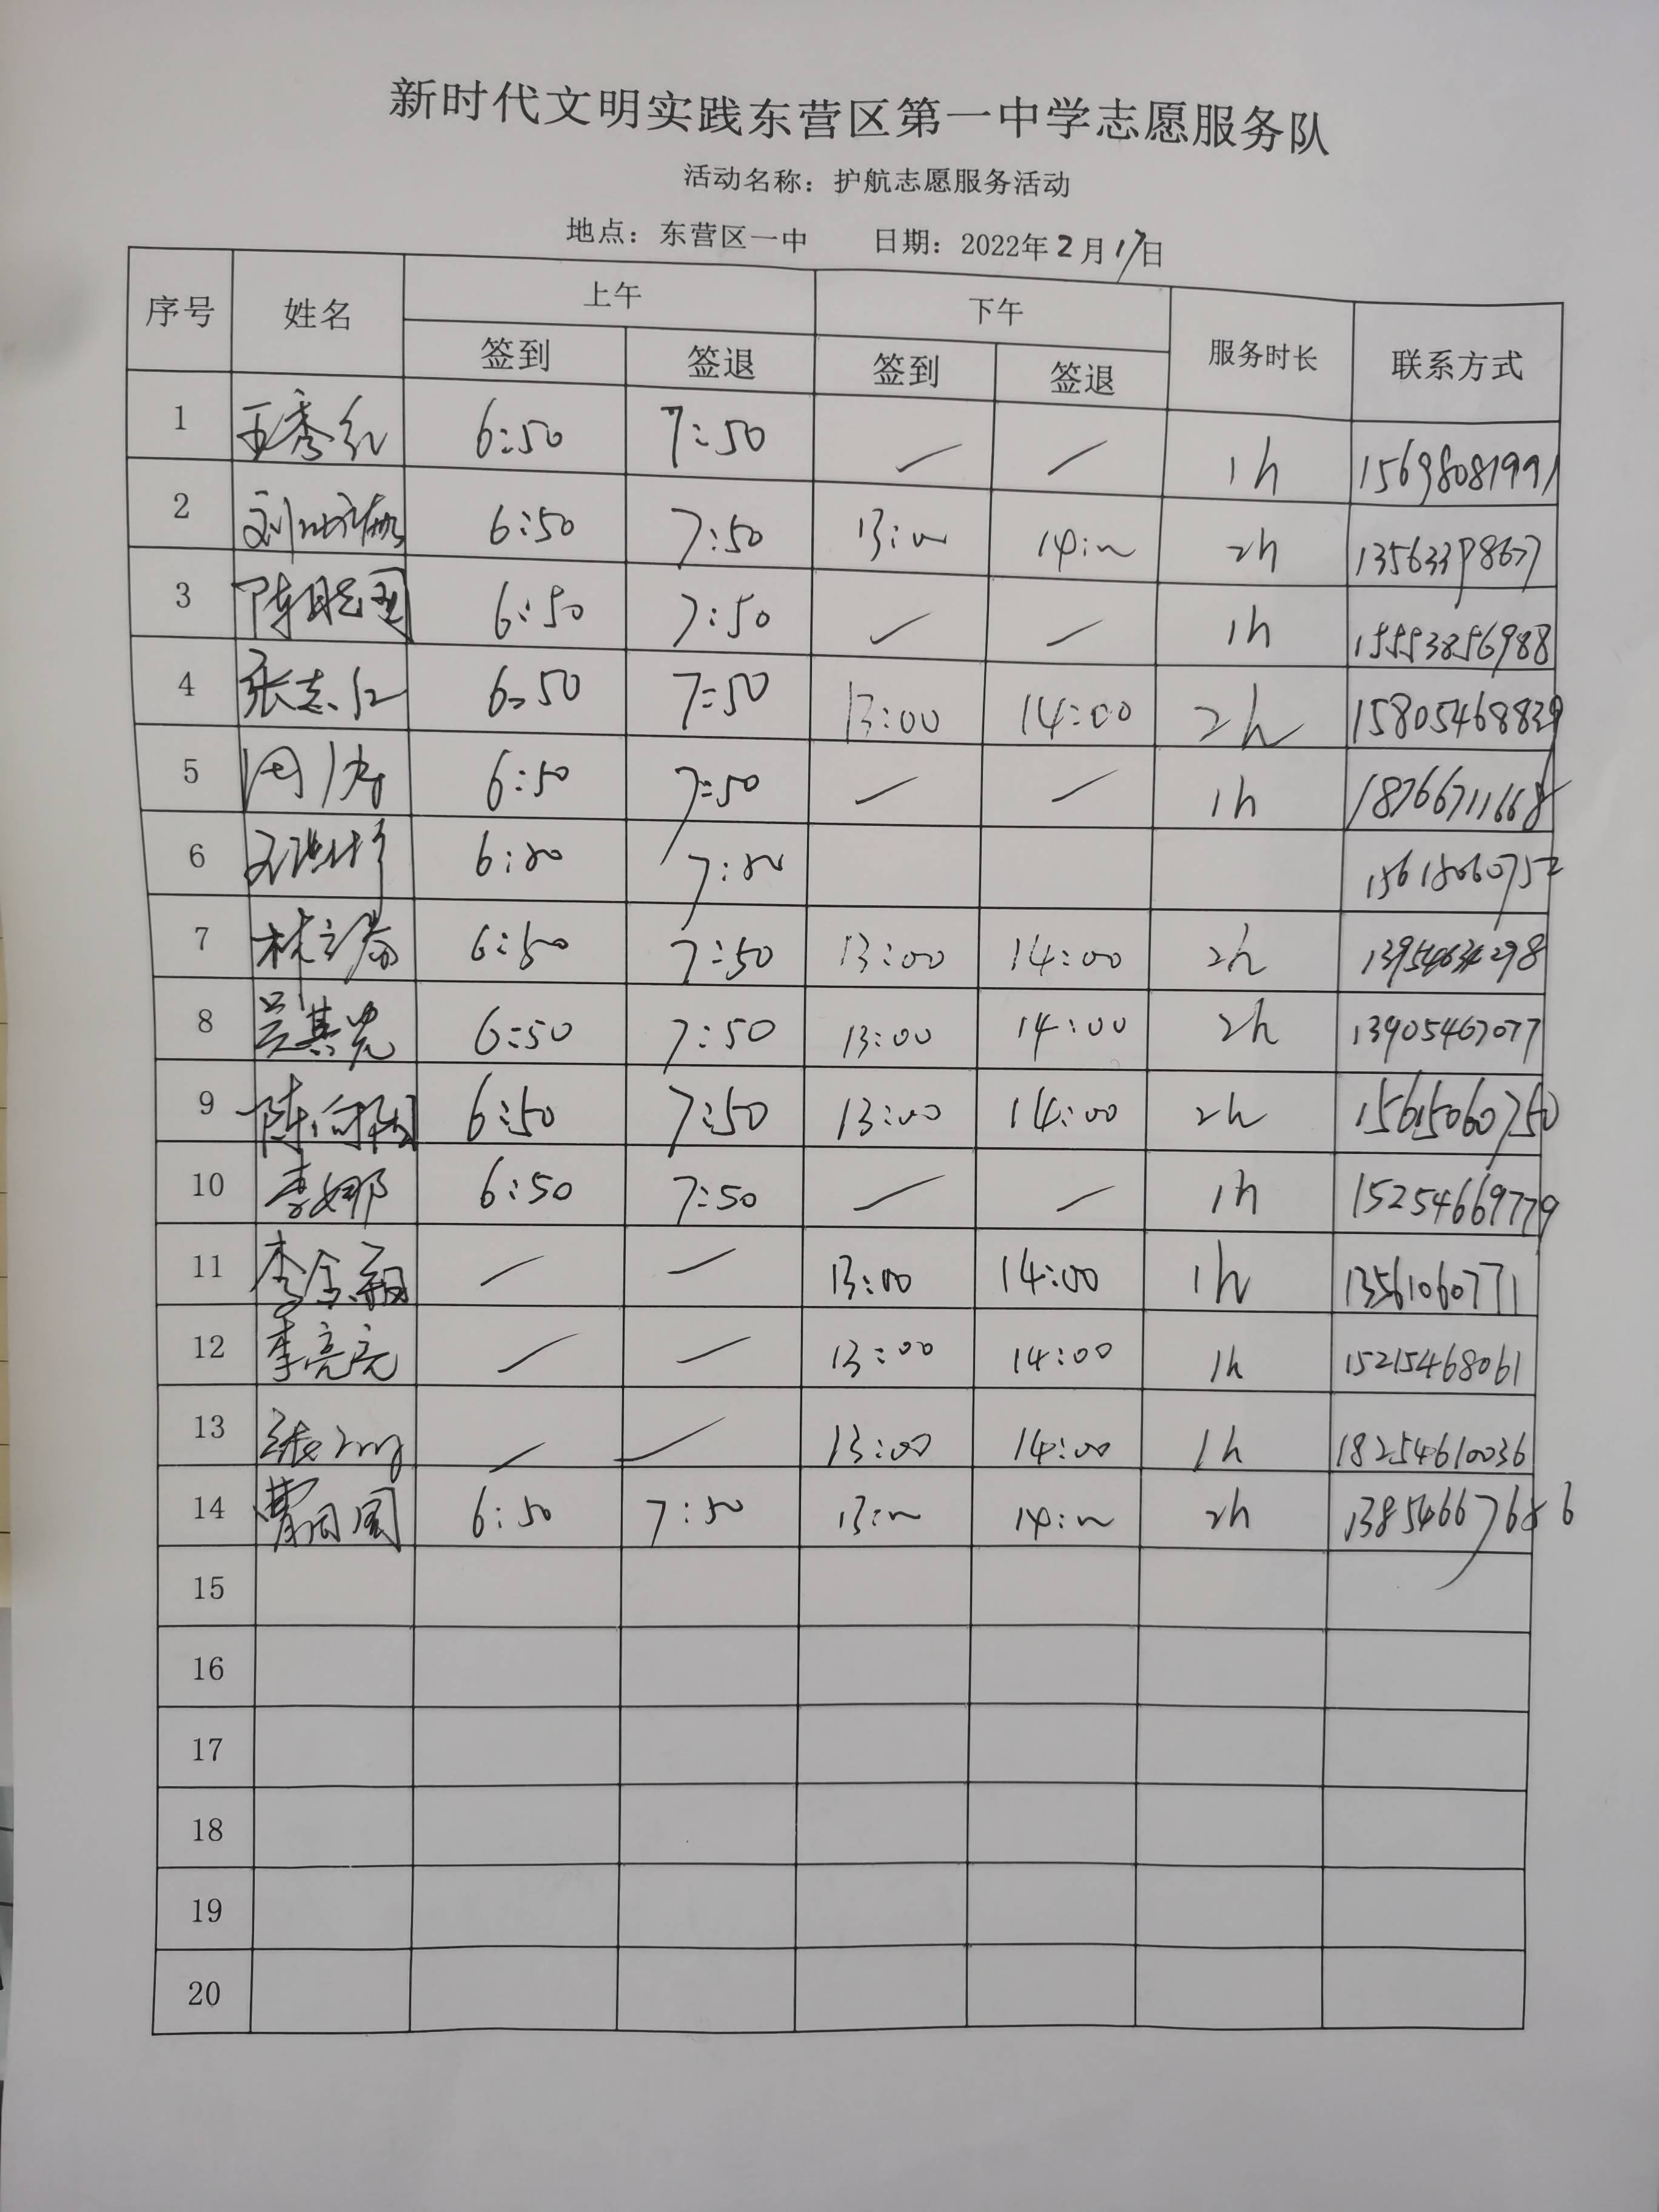 新时代文明实践东营区第一中学志愿服务队
活动名称：护航志愿服务活动
地点：东营区一中 日期：2022年2月17日
序号 姓名 上午 下午 服务时长 联系方式
签到 签退 签到 签退
1 王秀红 6:50 7:50 — — 1h 15698081991
2 6:50 7:50 13:00 14:00 2h 13563398677
3 6:50 7:50 — — 1h 15553856988
4 张志红 6:50 7:50 13:00 14:00 2h 15805468839
5 周涛 6:50 7:50 — — 1h 18766711668
6 6:50 7:50
7 6:50 7:50 13:00 14:00 2h
8 6:50 7:50 13:00 14:00 2h 13905467077
9 6:50 7:50 13:00 14:00 2h 15615060750
10 李娜 6:50 7:50 — — 1h 15254669779
11 — — 13:00 14:00 1h 13561060771
12 李亮亮 — — 13:00 14:00 1h 15215468061
13 — — 13:00 14:00 1h 18254610036
14 6:50 7:50 13:00 14:00 2h 13854667686
15
16
17
18
19
20